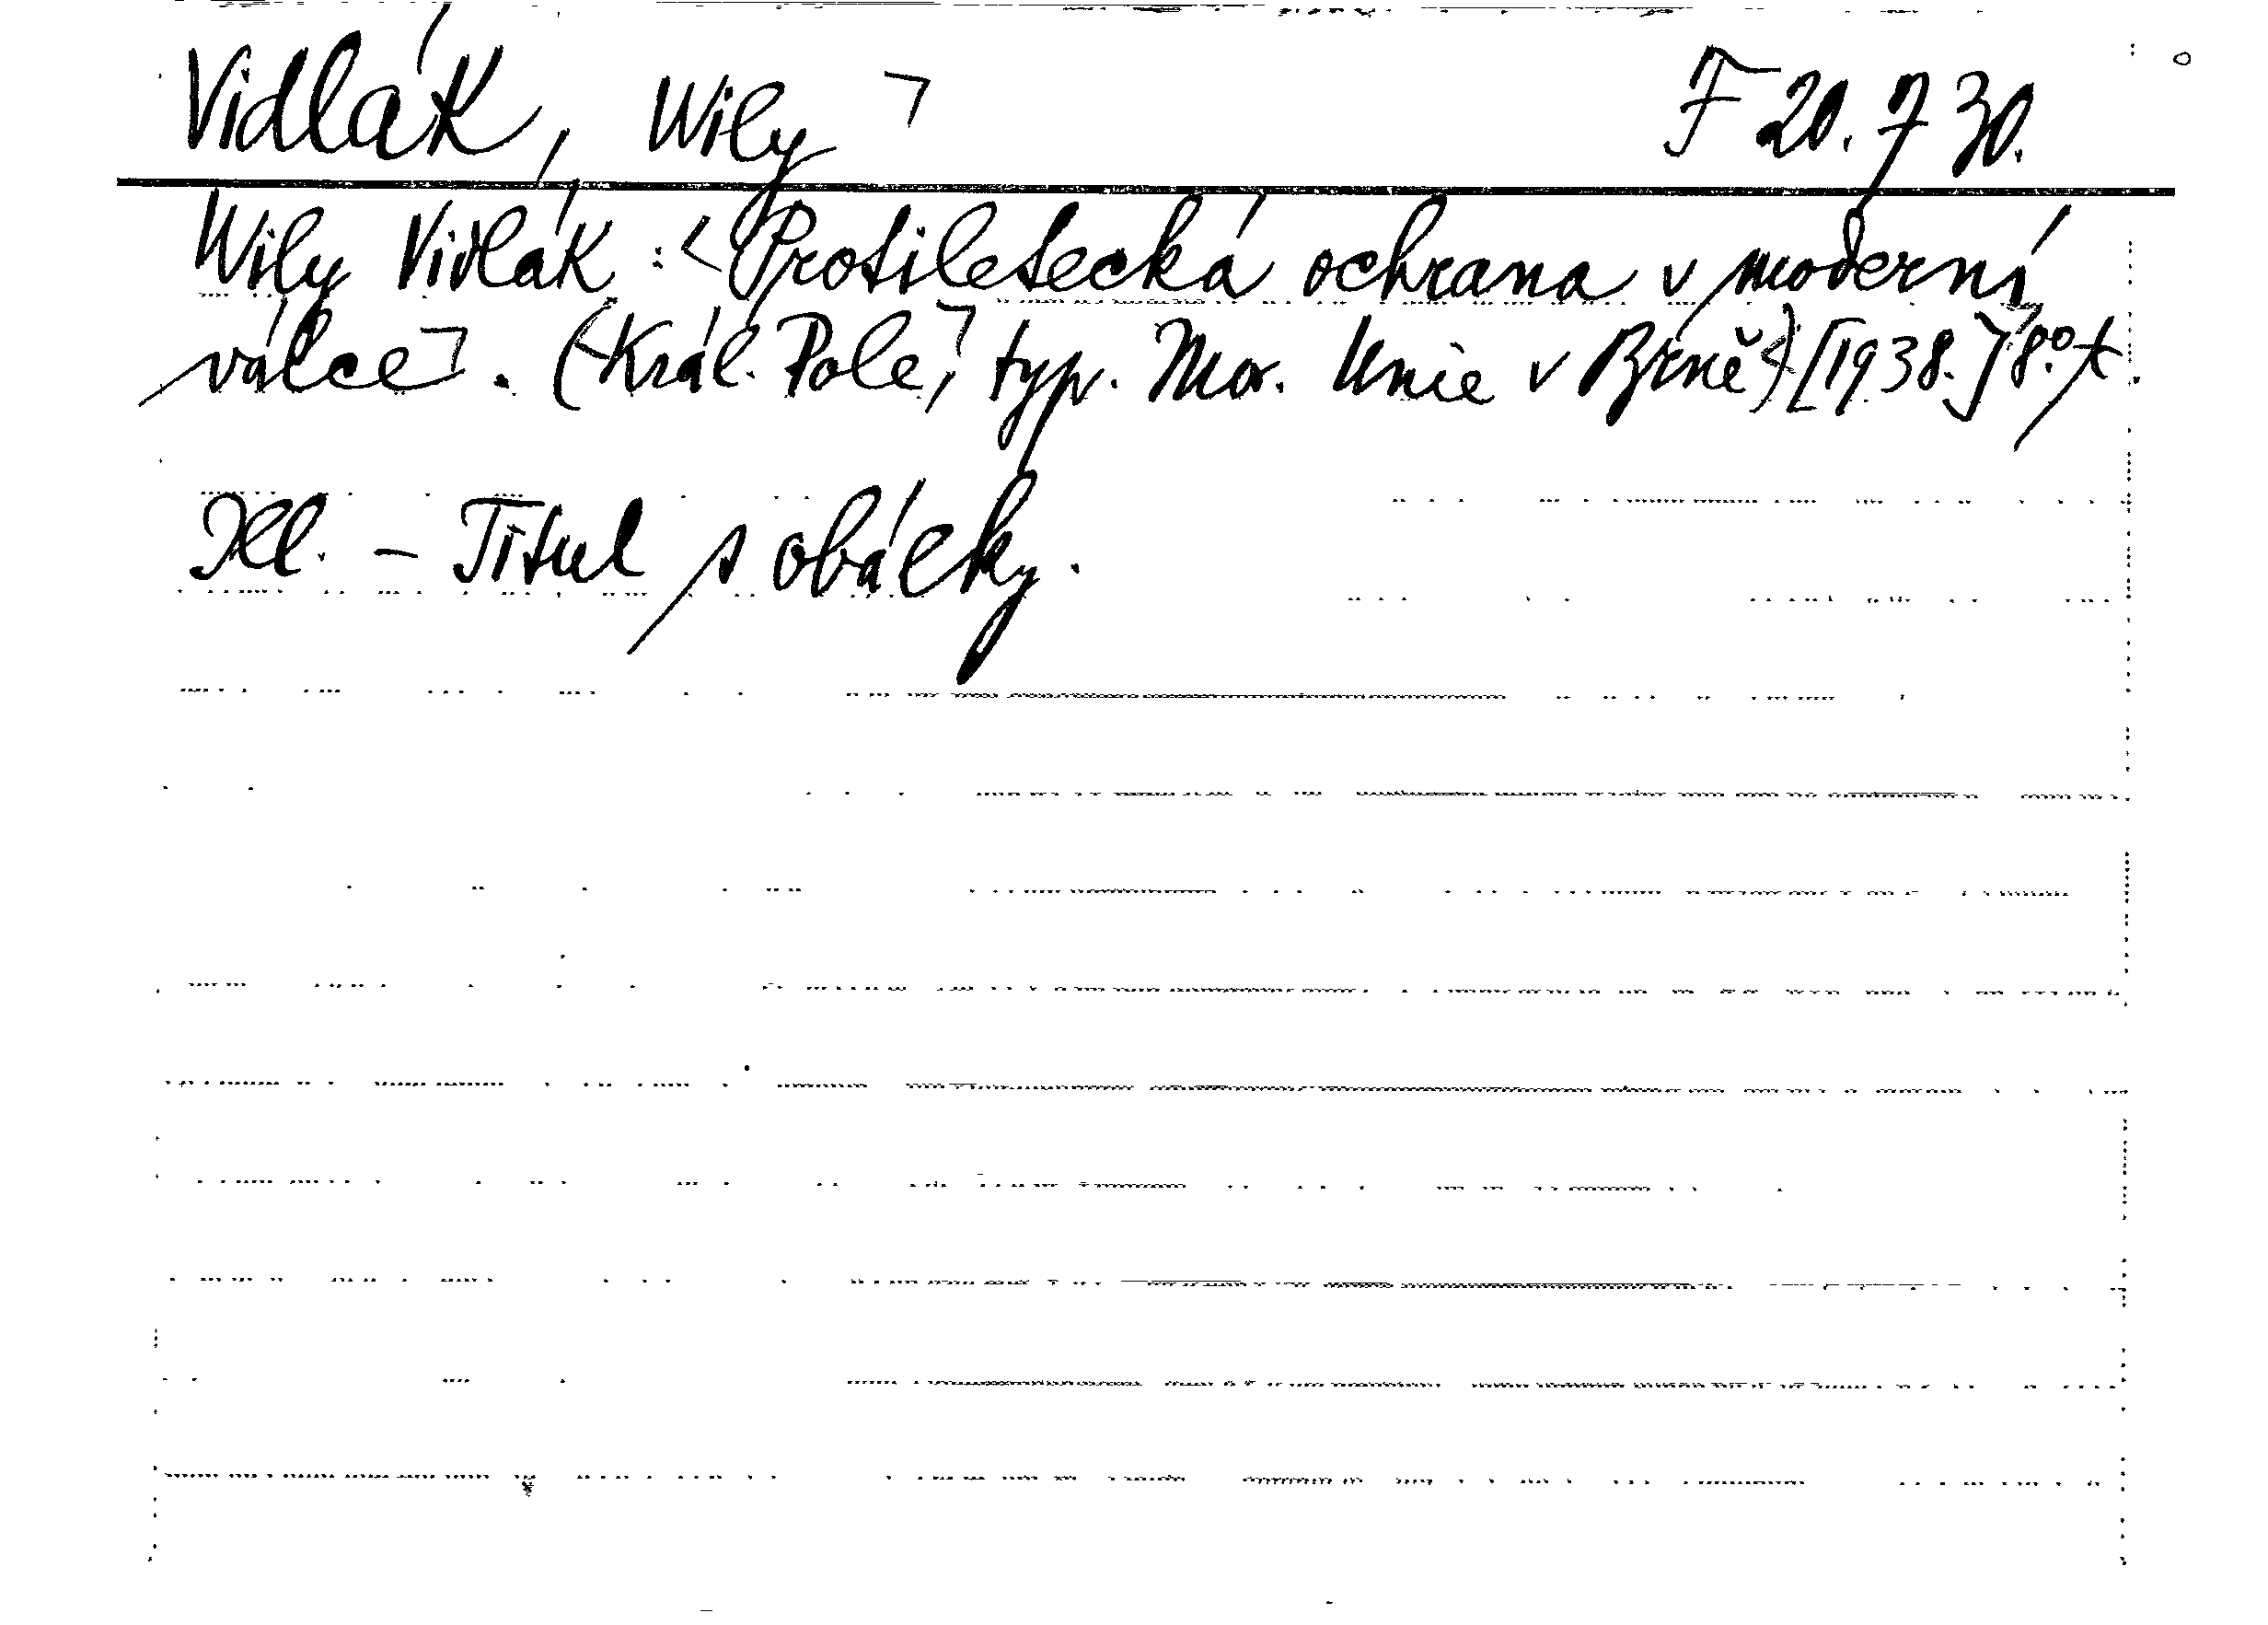 Vidlák, Wily ⌝ F 20.730.
Wily Vidlák : < Protiletecká ochrana v moderní
válce ⌝. (< Král. Pole, ⌝ typ. Mor. Unie v Brně) [1938.] 8°.
Il. – Titul s obálky.